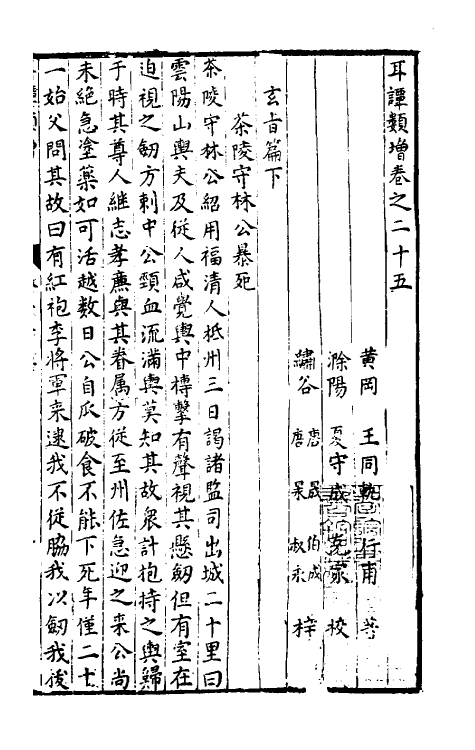 耳譚類增卷之二十五
黃岡 王同軌行甫 著
滁陽 夏守成克家 校
繡谷 唐晟伯成 唐㫤叔永 梓
玄旨篇下
茶陵守林公暴死
茶陵守林公紹用福清人柢州三日謁諸監司出城二十里曰
雲陽山輿夫及從人咸覺輿中摶擊有聲視其懸劒但有室在
迫視之劒方刺中公頸血流滿輿莫知其故衆計抱持之輿歸
于時其尊人維志孝廉與其眷属方從至州佐急迎之来公尚
未絕急塗藥如可活越數日公自瓜破食不能下死年僅二十
一始父問其故曰有紅袍李將軍来逮我不從脇我以劒我後